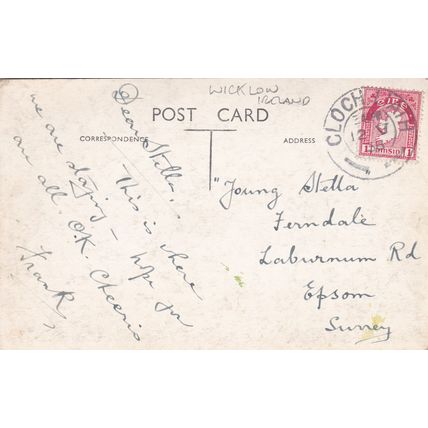 WICKLOW
IRELAND
POST CARD
CORRESPONDENCE
ADDRESS
Dear Stella,
This is where
we are staying – hope you
are all O.K. Cheerio
Frank
"Young Stella
Ferndale
Laburnum Rd
Epsom
Surrey
CLOCH
12
EIRE